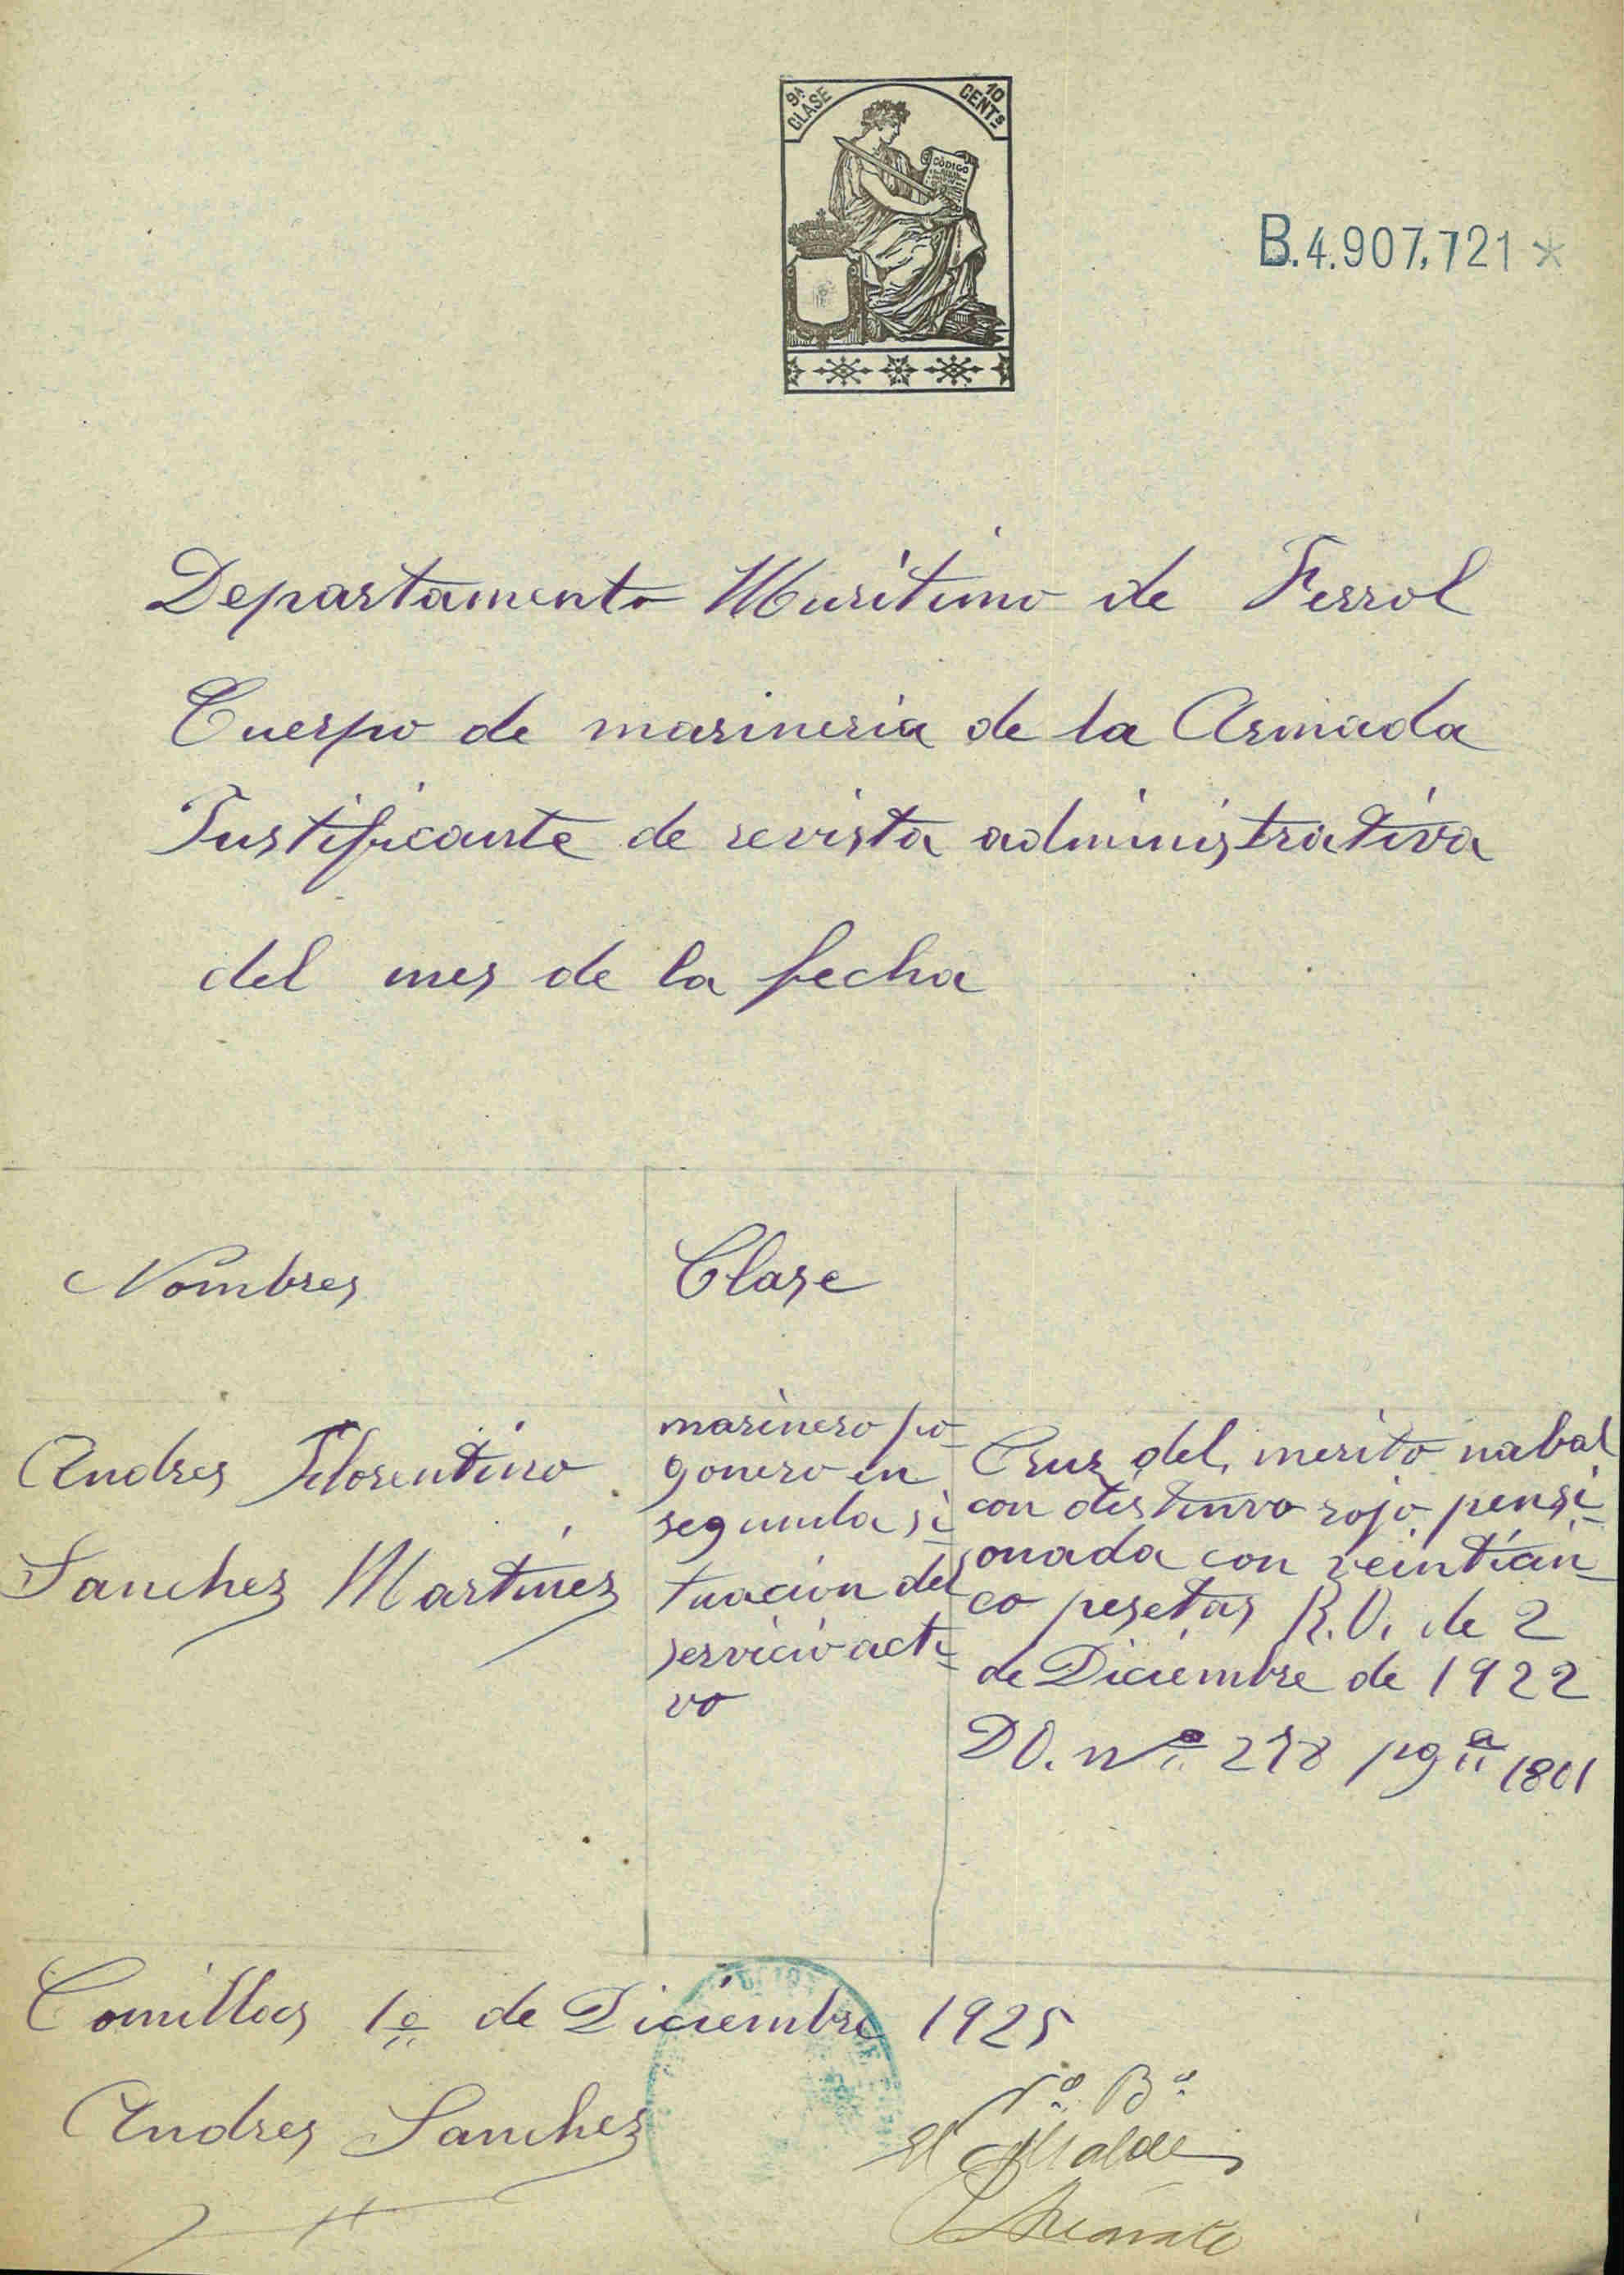 9ª CLASE
10 CENTS
CÓDIGO
B.4.907,721 *
Departamento Maritimo de Ferrol
Cuerpo de marineria de la Armada
Justificante de revista administrativa
del mes de la fecha
Nombres
Clase
Andres Florentino
Sanchez Martinez
marinero fo-
gonero en
segunda si
tuación del
servicio acti-
vo
Cruz del merito nabal
con distinvo rojo pensi-
onada con veinticin-
co pesetas R.O. de 2
de Diciembre de 1922
DO. nº 278 pgª 1801
Comillas 1º de Diciembre 1925
Andres Sanchez
Vº Bº
El Alcalde